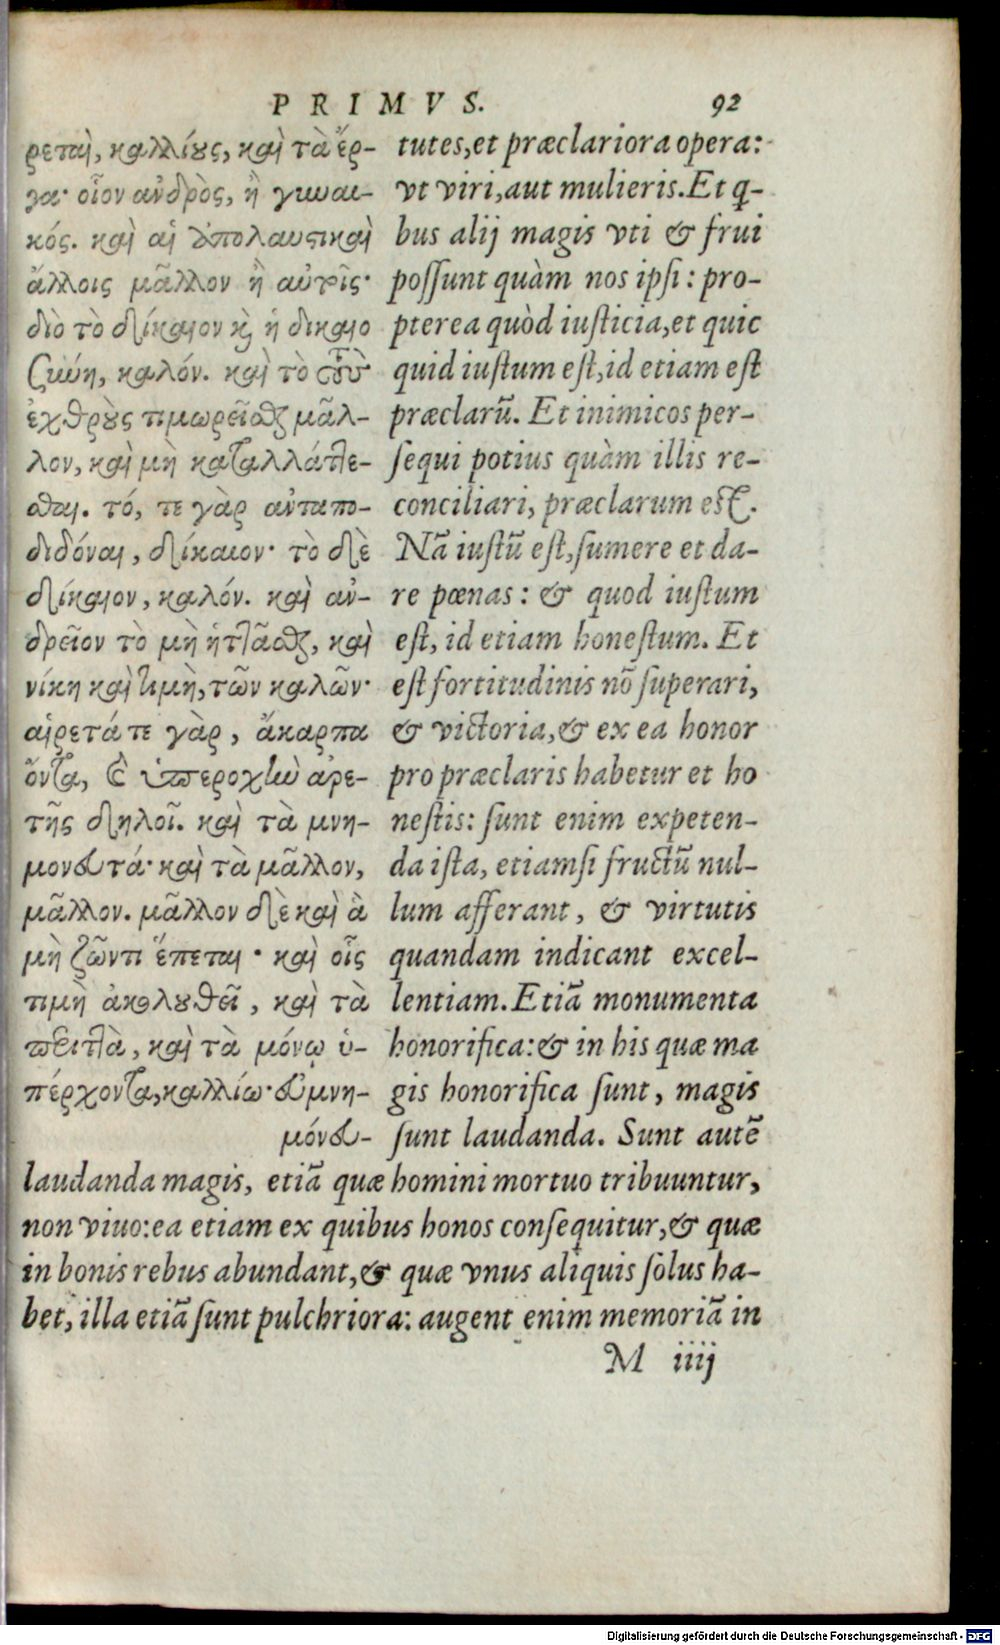 PRIMVS. 92
ρεταὶ, καλλίους, καὶ τὰ ἔρ-
γα· οἷον ἀνδρὸς, ἢ γυναι-
κός. καὶ αἱ ἀπολαυστικαὶ
ἄλλοις μᾶλλον ἢ αὐτοῖς·
διὸ τὸ δίκαιον καὶ ἡ δικαιο
σύνη, καλόν. καὶ τὸ τοὺς
ἐχθροὺς τιμωρεῖσθαι μᾶλ-
λον, καὶ μὴ καταλλάττε-
σθαι. τό, τε γὰρ ἀνταπο-
διδόναι, δίκαιον· τὸ δὲ
δίκαιον, καλόν. καὶ ἀν-
δρεῖον τὸ μὴ ἡττᾶσθαι, καὶ
νίκη καὶ τιμὴ, τῶν καλῶν·
αἱρετά τε γὰρ, ἄκαρπα
ὄντα, καὶ ὑπεροχὴν ἀρε-
τῆς δηλοῖ. καὶ τὰ μνη-
μονευτά· καὶ τὰ μᾶλλον,
μᾶλλον. μᾶλλον δὲ καὶ ἃ
μὴ ζῶντι ἕπεται· καὶ οἷς
τιμὴ ἀκολουθεῖ, καὶ τὰ
περιττὰ, καὶ τὰ μόνῳ ὑ-
πέρχοντα, καλλίω· εὐμνη-
μόνευ-
tutes, et præclariora opera:
vt viri, aut mulieris. Et q-
bus alij magis vti & frui
possunt quàm nos ipsi: pro-
pterea quòd iusticia, et quic
quid iustum est, id etiam est
præclarũ. Et inimicos per-
sequi potius quàm illis re-
conciliari, præclarum est.
Nã iustũ est, sumere et da-
re pœnas: & quod iustum
est, id etiam honestum. Et
est fortitudinis nõ superari,
& victoria, & ex ea honor
pro præclaris habetur et ho
nestis: sunt enim expeten-
da ista, etiamsi fructũ nul-
lum afferant, & virtutis
quandam indicant excel-
lentiam. Etiã monumenta
honorifica: & in his quæ ma
gis honorifica sunt, magis
sunt laudanda. Sunt autẽ
laudanda magis, etiã quæ homini mortuo tribuuntur,
non viuo: ea etiam ex quibus honos consequitur, & quæ
in bonis rebus abundant, & quæ vnus aliquis solus ha-
bet, illa etiã sunt pulchriora: augent enim memoriã in
M iiij
Digitalisierung gefördert durch die Deutsche Forschungsgemeinschaft - DFG